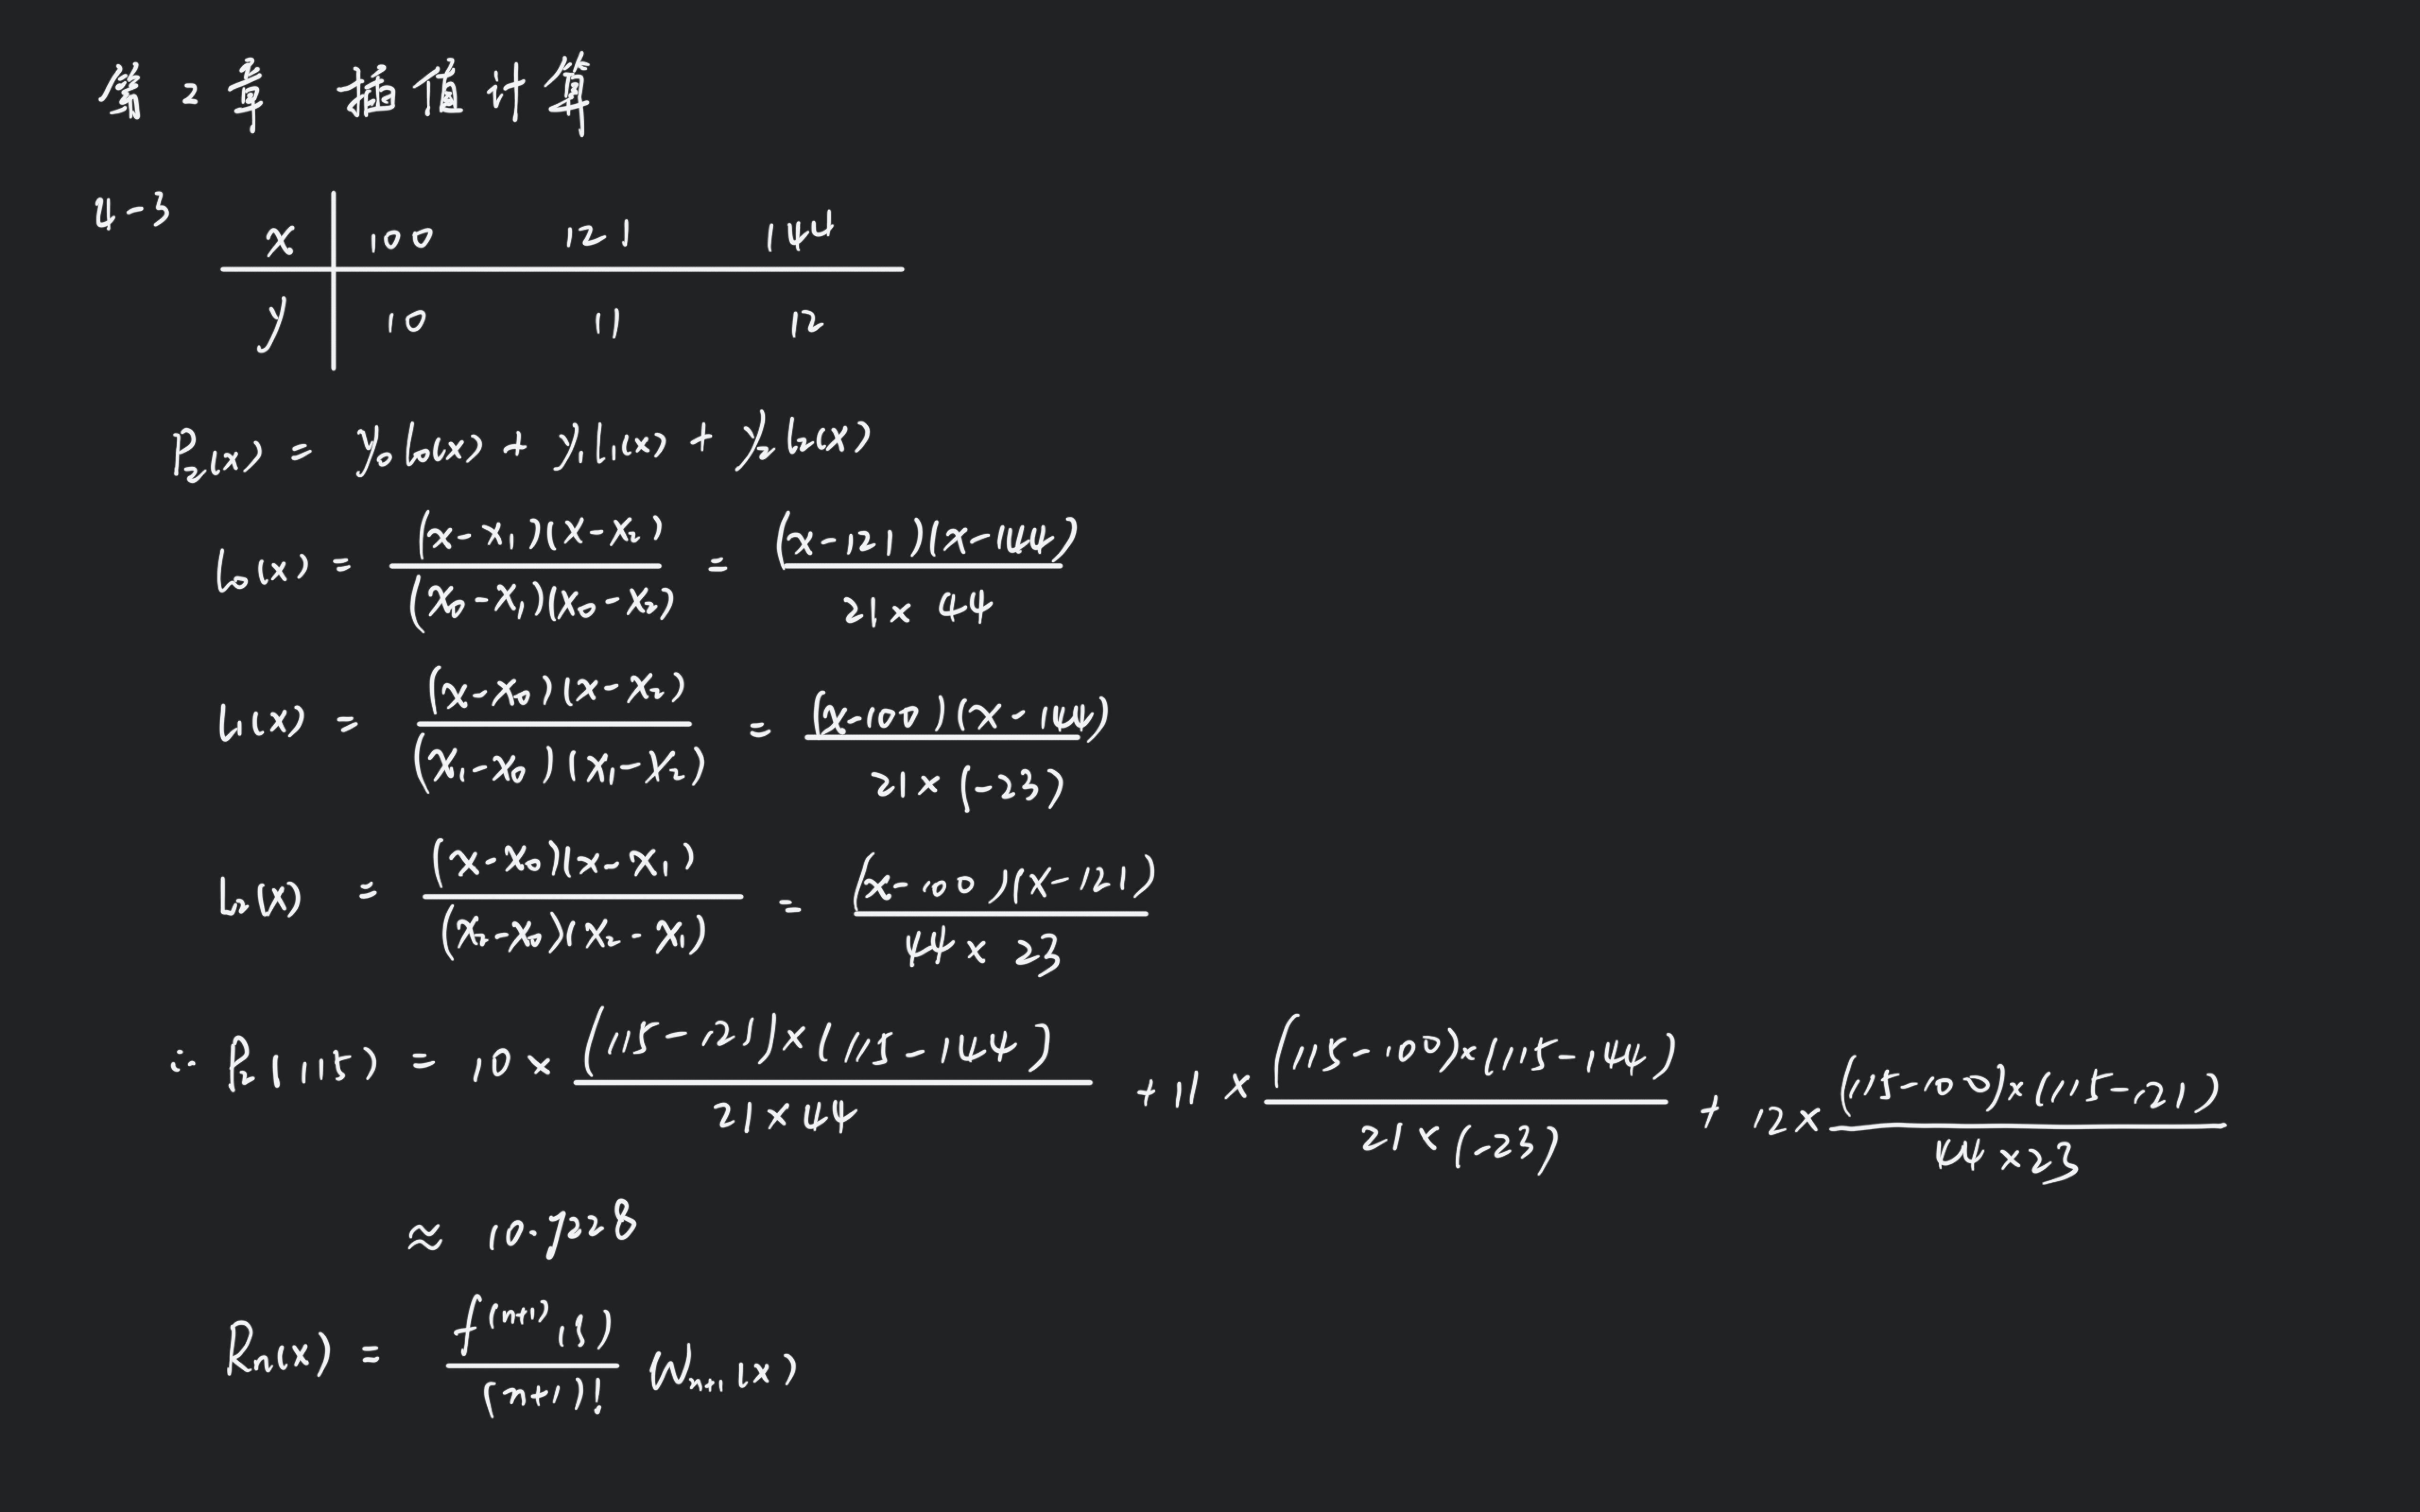 第2章 插值计算
4-3
x 100 121 144
y 10 11 12
P₂(x) = y₀l₀(x) + y₁l₁(x) + y₂l₂(x)
l₀(x) = (x-x₁)(x-x₂) / (x₀-x₁)(x₀-x₂) = (x-121)(x-144) / 21×44
l₁(x) = (x-x₀)(x-x₂) / (x₁-x₀)(x₁-x₂) = (x-100)(x-144) / 21×(-23)
l₂(x) = (x-x₀)(x-x₁) / (x₂-x₀)(x₂-x₁) = (x-100)(x-121) / 44×23
∴ P₂(115) = 10 × (115-121)×(115-144) / 21×44 + 11 × (115-100)×(115-144) / 21×(-23) + 12 × (115-100)×(115-121) / 44×23
≈ 10.7228
Rₙ(x) = f⁽ⁿ⁺¹⁾(ξ) / (n+1)! Wₙ₊₁(x)